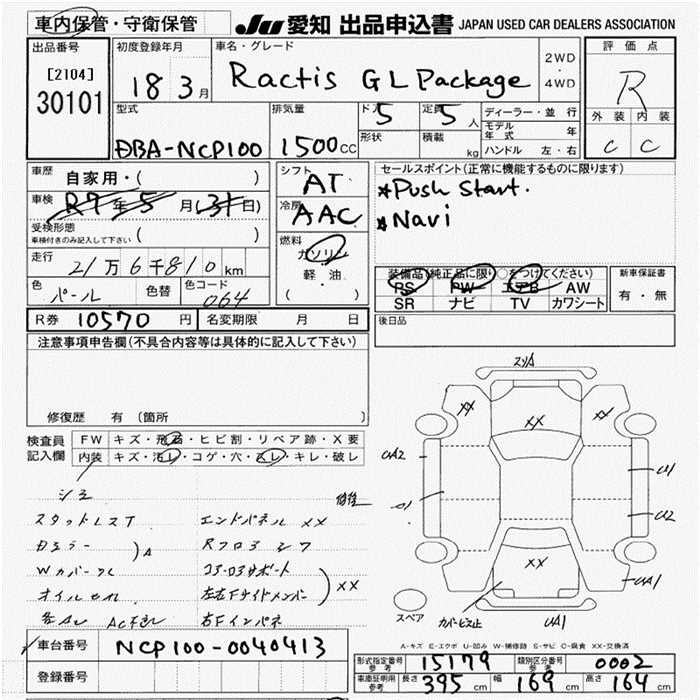 車内保管・守衛保管
JU 愛知 出品申込書 JAPAN USED CAR DEALERS ASSOCIATION
出品番号
[2104]
30101
初度登録年月
18 3月
車名・グレード
Ractis GL Package
2WD
・
4WD
評価点
R
外装 内装
C C
型式
DBA-NCP100
排気量
1500cc
ドア 5
形状
定員 5人
積載 kg
ディーラー・並行
モデル年式 年
ハンドル 左・右
車歴
自家用・( )
車検
R7年5月(31日)
受検形態
車検付きのみ記入して下さい ( )
走行
21万6千810km
色
パール
色替
色コード
064
シフト
AT
冷房
AAC
燃料
ガソリン
軽・油
( )
セールスポイント(正常に機能するものに限ります)
*Push Start.
*Navi
装備品(純正品に限り○をつけてください)
PS PW エアB AW
SR ナビ TV カワシート
新車保証書
有・無
R券 10570円
名変期限 月 日
後日品
注意事項申告欄(不具合内容等は具体的に記入して下さい)
修復歴 有 (箇所
検査員記入欄
FW キズ・飛石・ヒビ割・リペア跡・X要
内装 キズ・汚レ・コゲ・穴・スレ・キレ・破レ
シミ
修復
スタッドレスT
エンドパネル XX
A
Wカバー
オイル
XX
左右Fサイドメンバー
右Fインパネ
2ヶA
XX
XX
XX
UA2
U1
U2
XX
UA1
スペア
カバービス止
UA1
A-キズ E-エクボ U-凹み W-補修跡 S-サビ C-腐食 XX-交換済
車台番号
NCP100-0040413
登録番号
型式指定番号 参考
15179
類別区分番号 参考
0002
車庫証明用 参考
長さ 395cm 幅 169cm 高さ 164cm